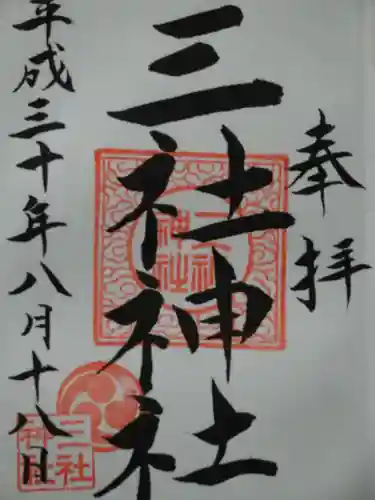 奉拝
三社神社
平成三十年八月十八日
三社
神社
三社
神社